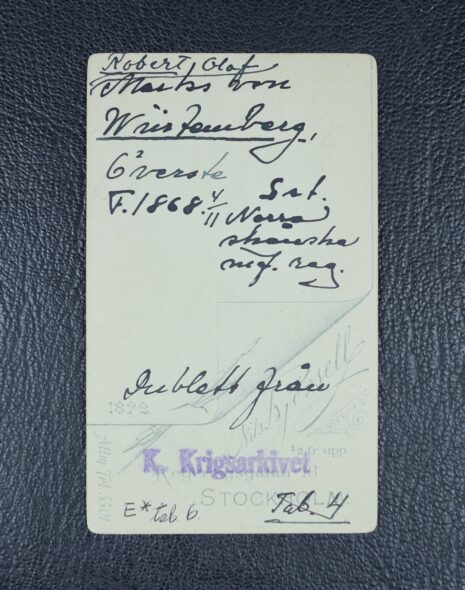 Robert Olof
Marks von
Würtemberg,
Överste
F. 1868. 4/11
Srt.
Norra
skånska
inf. reg.
Dublett från
1892
Nils
1 tr upp
K. Krigsarkivet
Regeringsgatan 18
STOCKHOLM
Allm Tel 5501
E* tab. 6.
Tab. 4